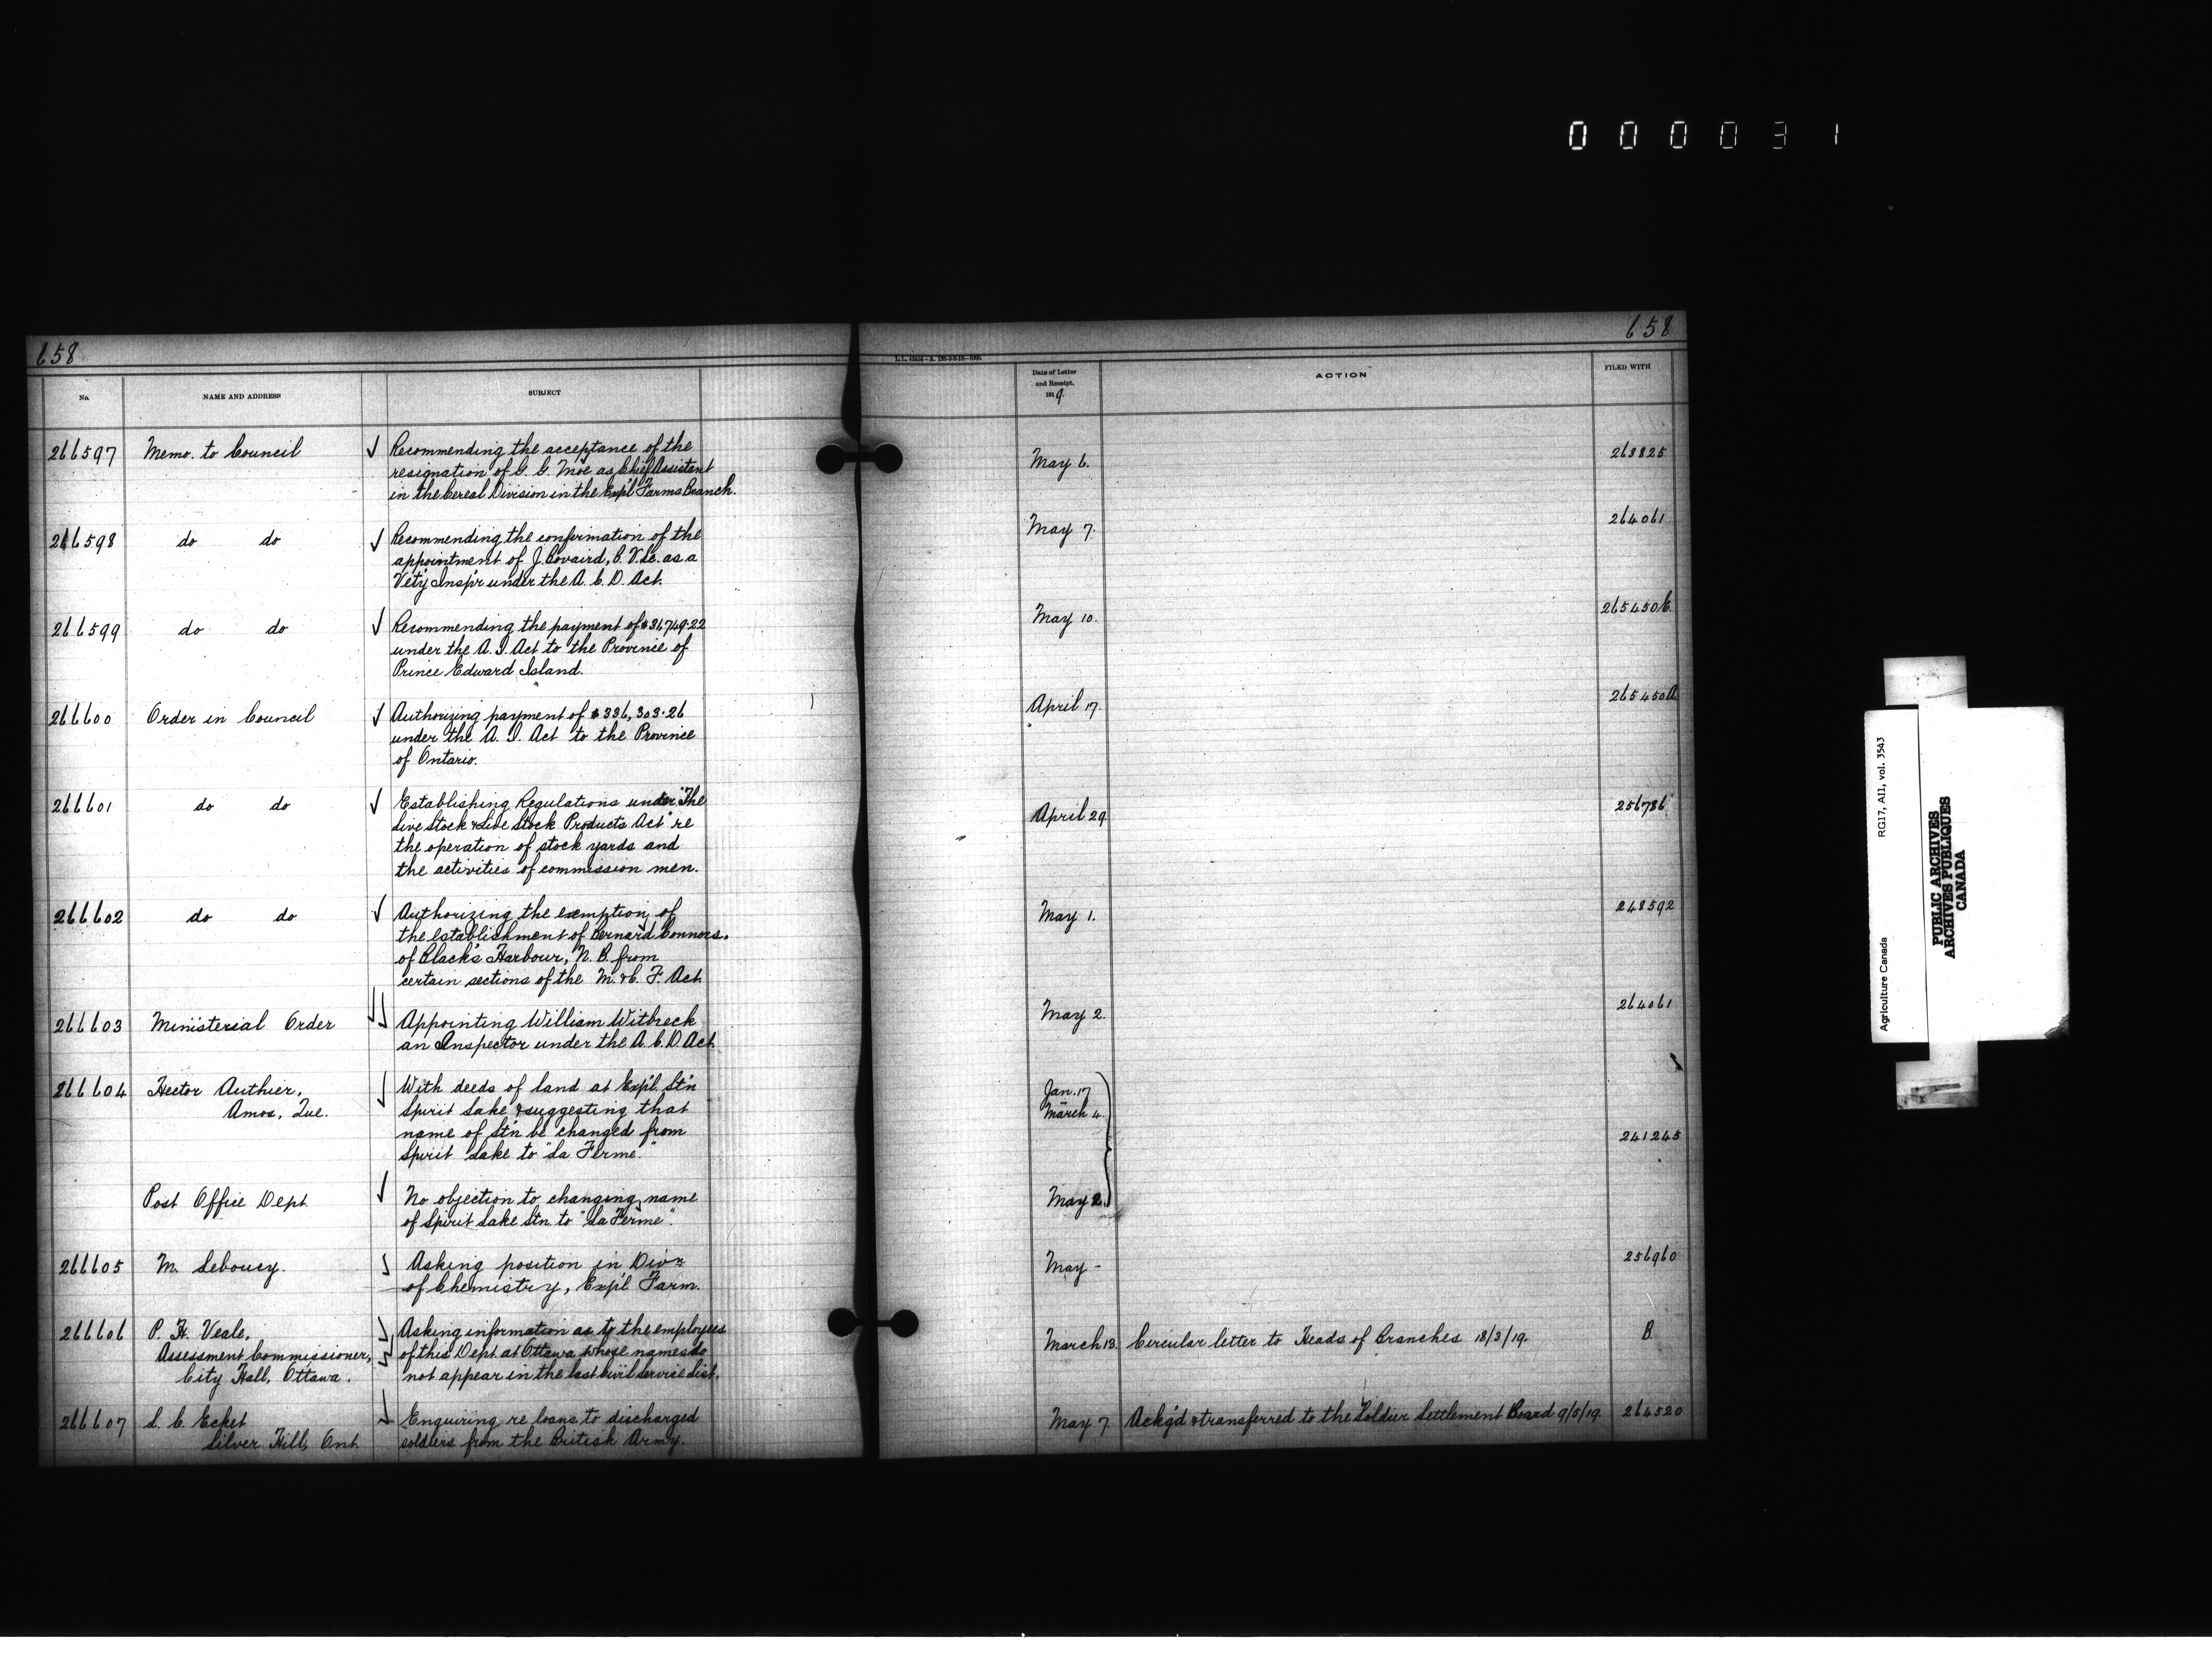 000031
658
658
L. L. 42434—A. 198-3-8-18—1000.
No.
NAME AND ADDRESS
SUBJECT
Date of Letter
and Receipt,
1919.
ACTION
FILED WITH
266597 Memo. to Council Recommending the acceptance of the May 6. 263825
resignation of G. G. Moe as Chief Assistant
in the Cereal Division in the Exp'l Farms Branch.
266598 do do Recommending the confirmation of the May 7. 264061
appointment of J. Bovaird, B. V. Sc. as a
Vet'y Insp'r under the A. C. D. Act.
266599 do do Recommending the payment of $36749.22 May 10. 265450E.
under the A. I. Act to the Province of
Prince Edward Island.
266600 Order in Council Authorizing payment of $336,303.26 April 17. 265450A.
under the A. I. Act to the Province
of Ontario.
266601 do do Establishing Regulations under "The April 29 256786
Live Stock & Live Stock Products Act" re
the operation of stock yards and
the activities of commission men.
266602 do do Authorizing the exemption of May 1. 248592
the establishment of Bernard Connors.
of Black's Harbour, N. B. from
certain sections of the M. & C. F. Act
266603 Ministerial Order Appointing William Witbreck May 2. 264061
an Inspector under the A. C. D. Act
266604 Hector Authier, With deeds of land at Exp'l. St'n Jan. 17
Amos, Que. Spirit Lake & suggesting that March 4.
name of St'n be changed from 241245
Spirit Lake to "La Ferme."
Post Office Dept No objection to changing name May 2.
of Spirit Lake Stn. to "La Ferme".
266605 M. Leboucy. Asking position in Div'n May - 256960
of Chemistry, Exp'l Farm.
266606 P. H. Veale, Asking information as to the employees March 13. Circular letter to Heads of Branches 18/3/19. B.
Assessment Commissioner, of this Dept at Ottawa whose names do
City Hall, Ottawa. not appear in the last Civil Service List.
266607 L. C. Ecket Enquiring re loans to discharged May 7. Ackg'd & transferred to the Soldier Settlement Board 9/5/19. 264520
Silver Hill, Ont. soldiers from the British Army.
Agriculture Canada RG17, AI1, vol. 3543
PUBLIC ARCHIVES
ARCHIVES PUBLIQUES
CANADA